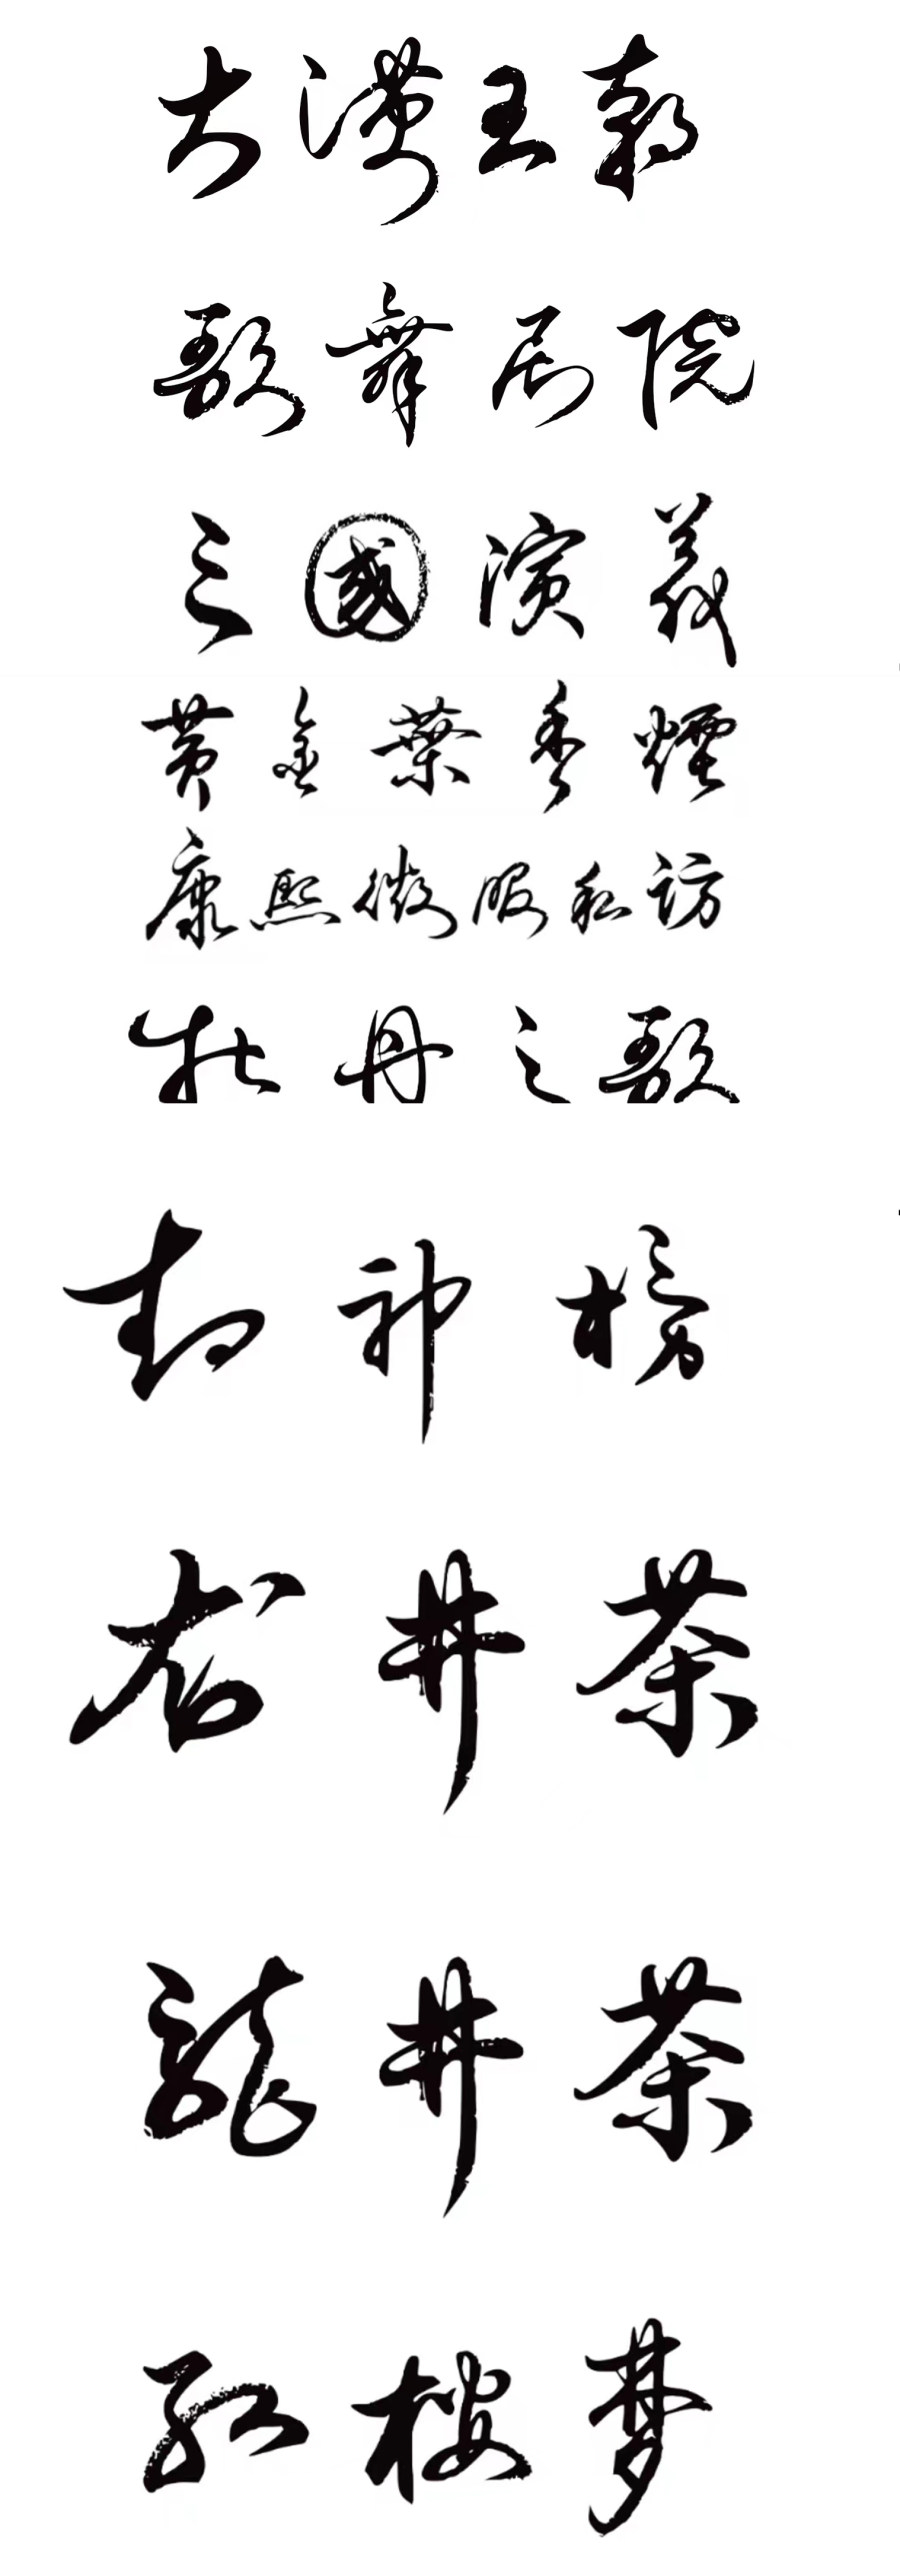 大漢王朝
歌舞剧院
三國演義
黄金葉香煙
康熙微服私访
牡丹之歌
封神榜
龙井茶
龍井茶
红楼梦